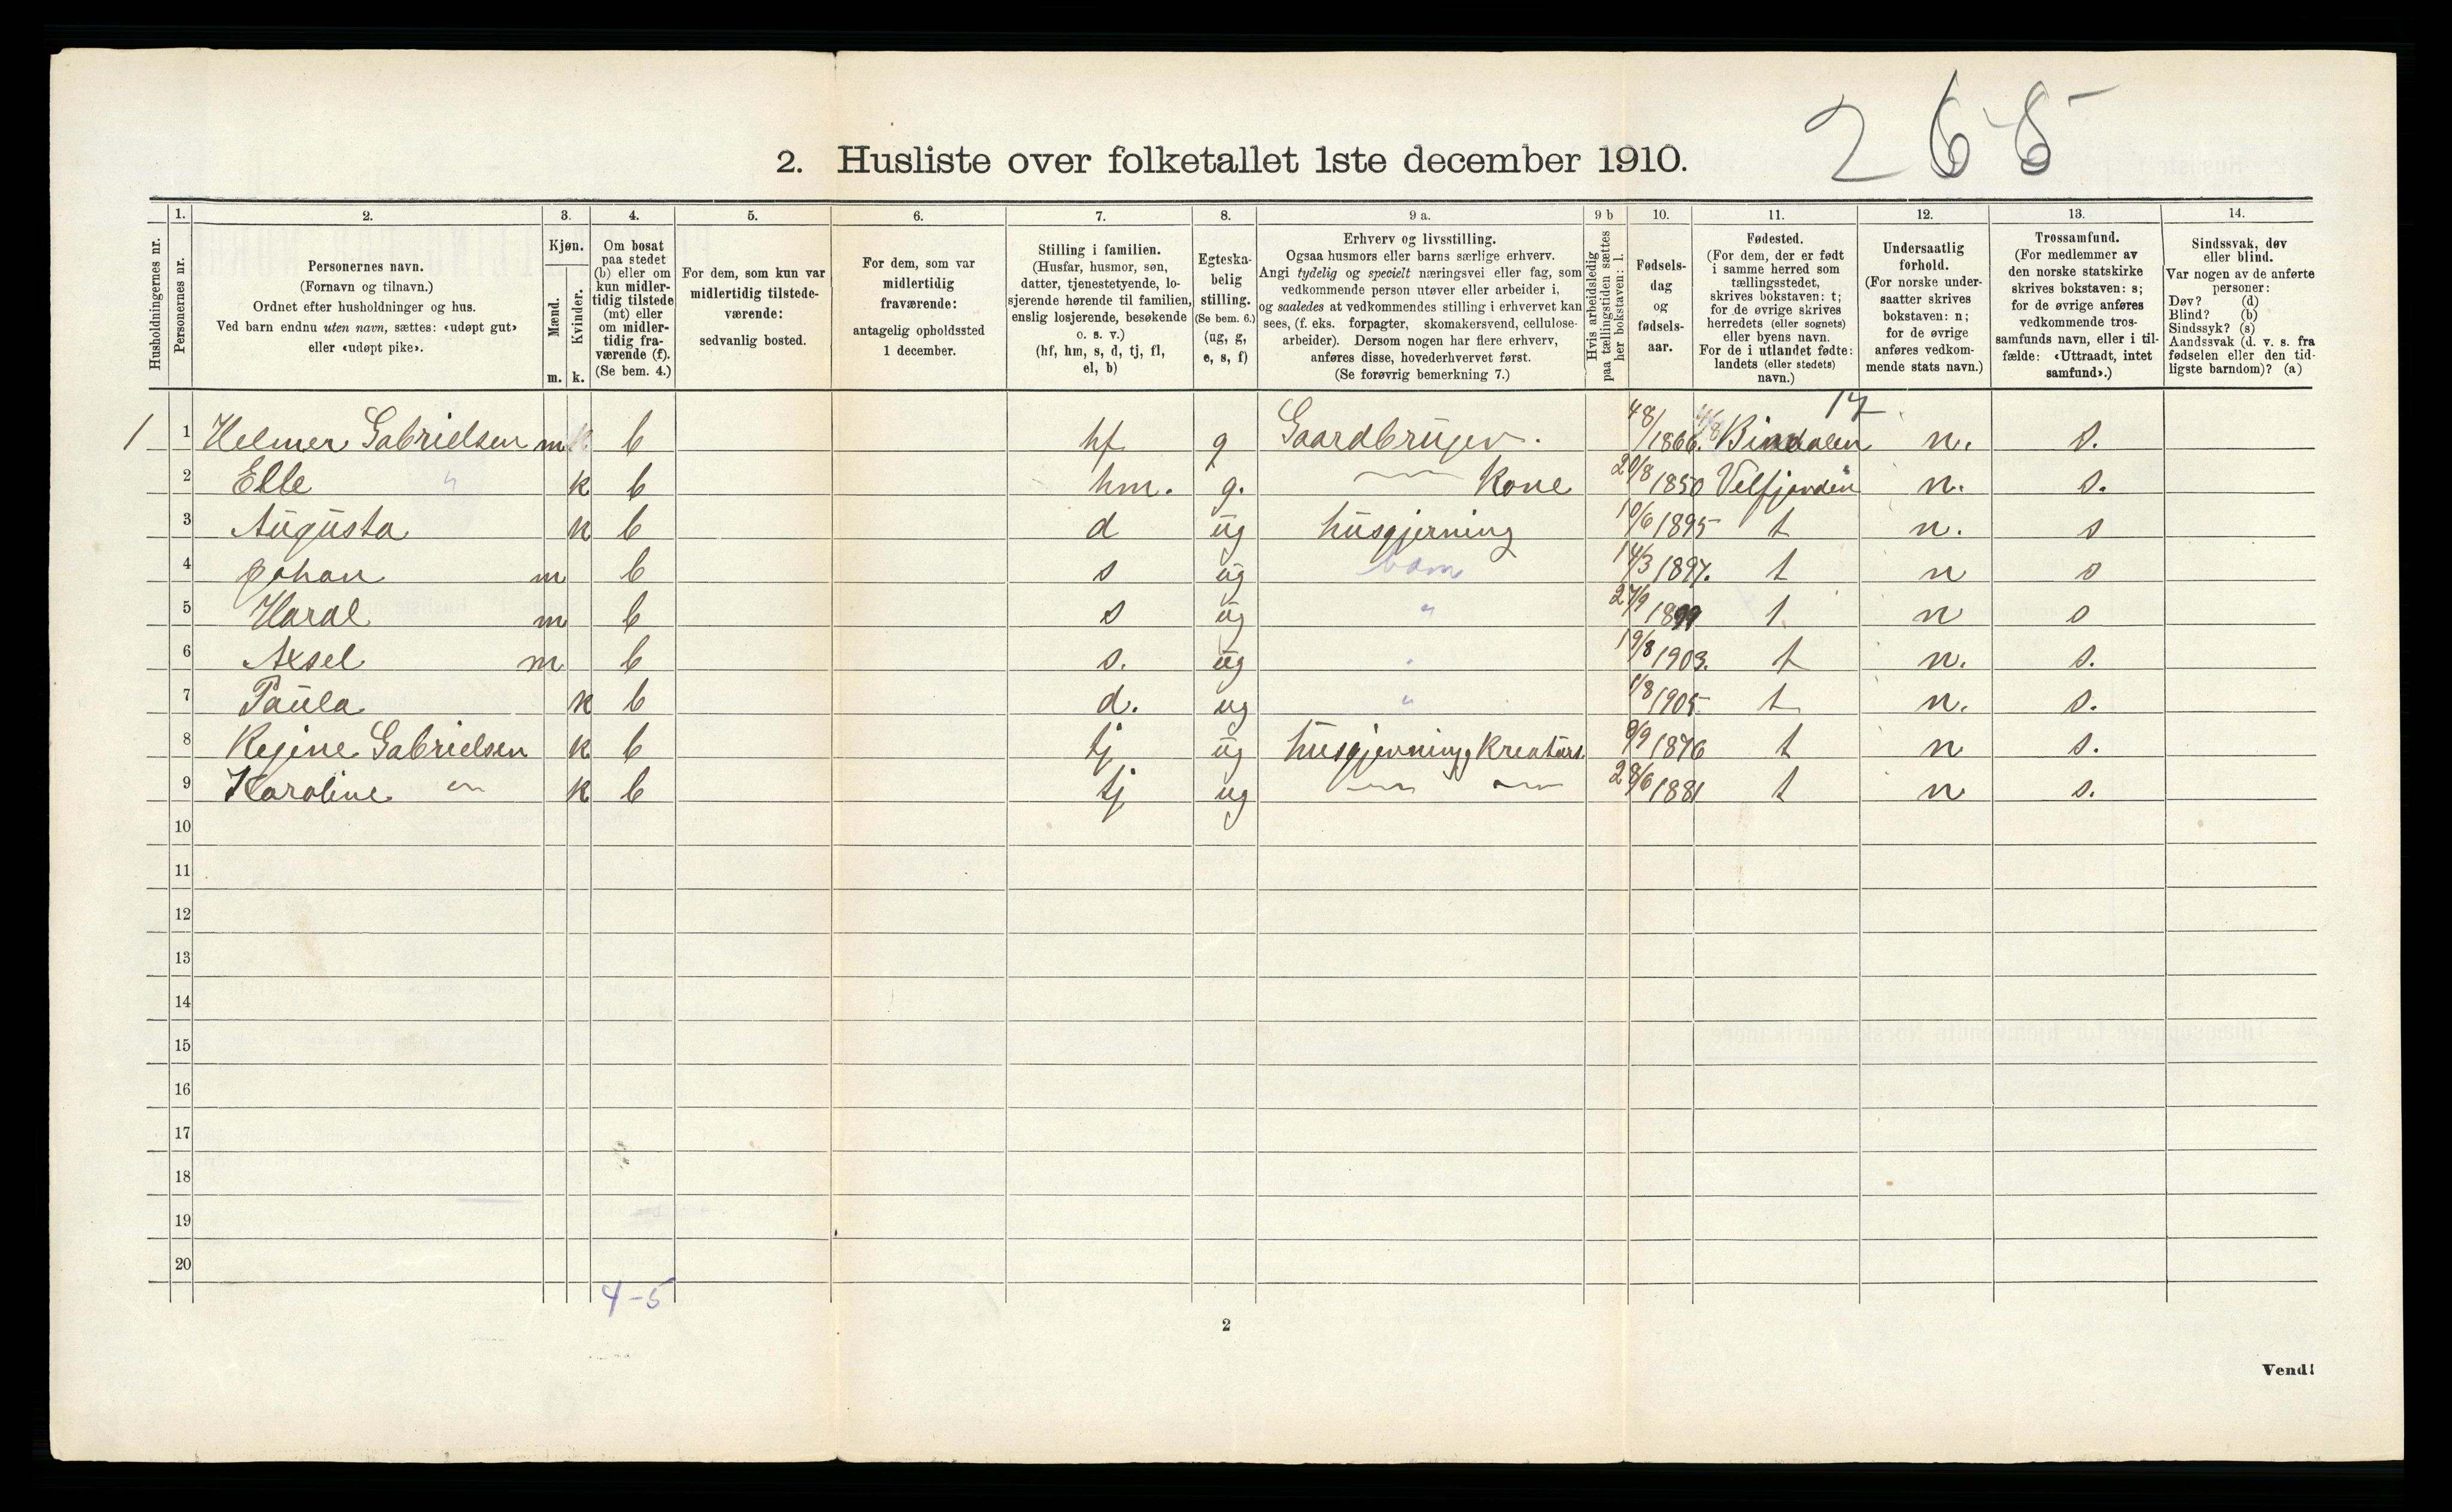 2 6 8 5
2. Husliste over folketallet 1ste december 1910.
Husholdningernes nr. | 1. Personernes nr. | 2. | 3. | 4. | 5. | 6. | 7. | 8. | 9 a. | 9 b | 10. | 11. | 12. | 13. | 14.
Personernes navn.
(Fornavn og tilnavn.)
Ordnet efter husholdninger og hus.
Ved barn endnu uten navn, sættes: «udøpt gut»
eller «udøpt pike».
Kjøn.
Mænd.
Kvinder.
m. k.
Om bosat
paa stedet
(b) eller om
kun midler-
tidig tilstede
(mt) eller
om midler-
tidig fra-
værende (f).
(Se bem. 4.)
For dem, som kun var
midlertidig tilstede-
værende:
sedvanlig bosted.
For dem, som var
midlertidig
fraværende:
antagelig opholdssted
1 december.
Stilling i familien.
(Husfar, husmor, søn,
datter, tjenestetyende, lo-
sjerende hørende til familien,
enslig losjerende, besøkende
o. s. v.)
(hf, hm, s, d, tj, fl,
el, b)
Egteska-
belig
stilling.
(Se bem. 6.)
(ug, g,
e, s, f)
Erhverv og livsstilling.
Ogsaa husmors eller barns særlige erhverv.
Angi tydelig og specielt næringsvei eller fag, som
vedkommende person utøver eller arbeider i,
og saaledes at vedkommendes stilling i erhvervet kan
sees, (f. eks. forpagter, skomakersvend, cellulose-
arbeider). Dersom nogen har flere erhverv,
anføres disse, hovederhvervet først.
(Se forøvrig bemerkning 7.)
Hvis arbeidsledig
paa tællingstiden sættes
her bokstaven: l.
Fødsels-
dag
og
fødsels-
aar.
Fødested.
(For dem, der er født
i samme herred som
tællingsstedet,
skrives bokstaven: t;
for de øvrige skrives
herredets (eller sognets)
eller byens navn.
For de i utlandet fødte:
landets (eller stedets)
navn.)
Undersaatlig
forhold.
(For norske under-
saatter skrives
bokstaven: n;
for de øvrige
anføres vedkom-
mende stats navn.)
Trossamfund.
(For medlemmer av
den norske statskirke
skrives bokstaven: s;
for de øvrige anføres
vedkommende tros-
samfunds navn, eller i til-
fælde: «Uttraadt, intet
samfund».)
Sindssvak, døv
eller blind.
Var nogen av de anførte
personer:
Døv? (d)
Blind? (b)
Sindssyk? (s)
Aandssvak (d. v. s. fra
fødselen eller den tid-
ligste barndom)? (a)
17
1 1 Helmer Gabrielsen m b hf g Gaardbruger. 4/8 1866. Bindalen n. s.
2 Elle " k b hm. g. Kone 20/8 1850 Velfjorden n. s.
3 Augusta k b d ug husgjerning 10/6 1895 t n. s
4 Johan m b s ug barn 14/3 1897. t n s
5 Haral m b s ug " 27/9 1899 t n s
6 Axsel m b s. ug " 19/8 1903. t n. s.
7 Paula k b d. ug " 1/8 1905 t n. s.
8 Regine Gabrielsen k b tj ug husgjerning, Kreaturs. 8/9 1876 t n s.
9 Karoline " k b tj ug " " 28/6 1881 t n s.
10
11
12
13
14
15
16
17
18
19
20
4-5
2
Vend!